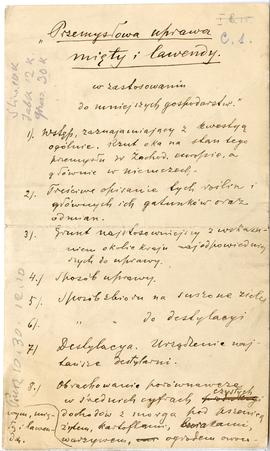 "Przemysłowa uprawa
mięty i lawendy.
C. 1.
w zastosowaniu
do mniejszych gospodarstw."
1). Wstęp, zaznajamiający z kwestyą
ogólnie. Rzut oka na stan tego
przemysłu w Zachod. Europie, a
głównie w Niemczech.
2). Treściwe opisanie tych roślin i
głównych ich gatunków oraz
odmian.
3). Grunt najstosowniejszy z wskaza-
niem okolic kraju najodpowiedniej-
szych do uprawy.
4.) Sposób uprawy.
5.) Sposób zbioru na suszone ziele
6) " " do destylacyi
7) Destylacya. Urządzenie naj-
tańsze destylarni.
8.) Obrachowanie porównawcze
w średnich cyfrach czystych
dochodów z morga pod pszenicą,
żytem, kartoflami, burakami,
warzywem, ogrodem owoc.